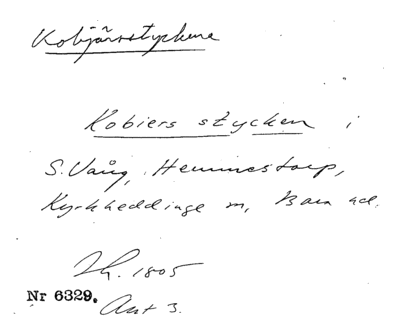 Kobjärsstyckene
Kobiers stycken i
S. Vång, Hemmestorp,
Kyrkheddinge sn, Bara hd.
Lh. 1805
Nr 6329.
Akt 3.